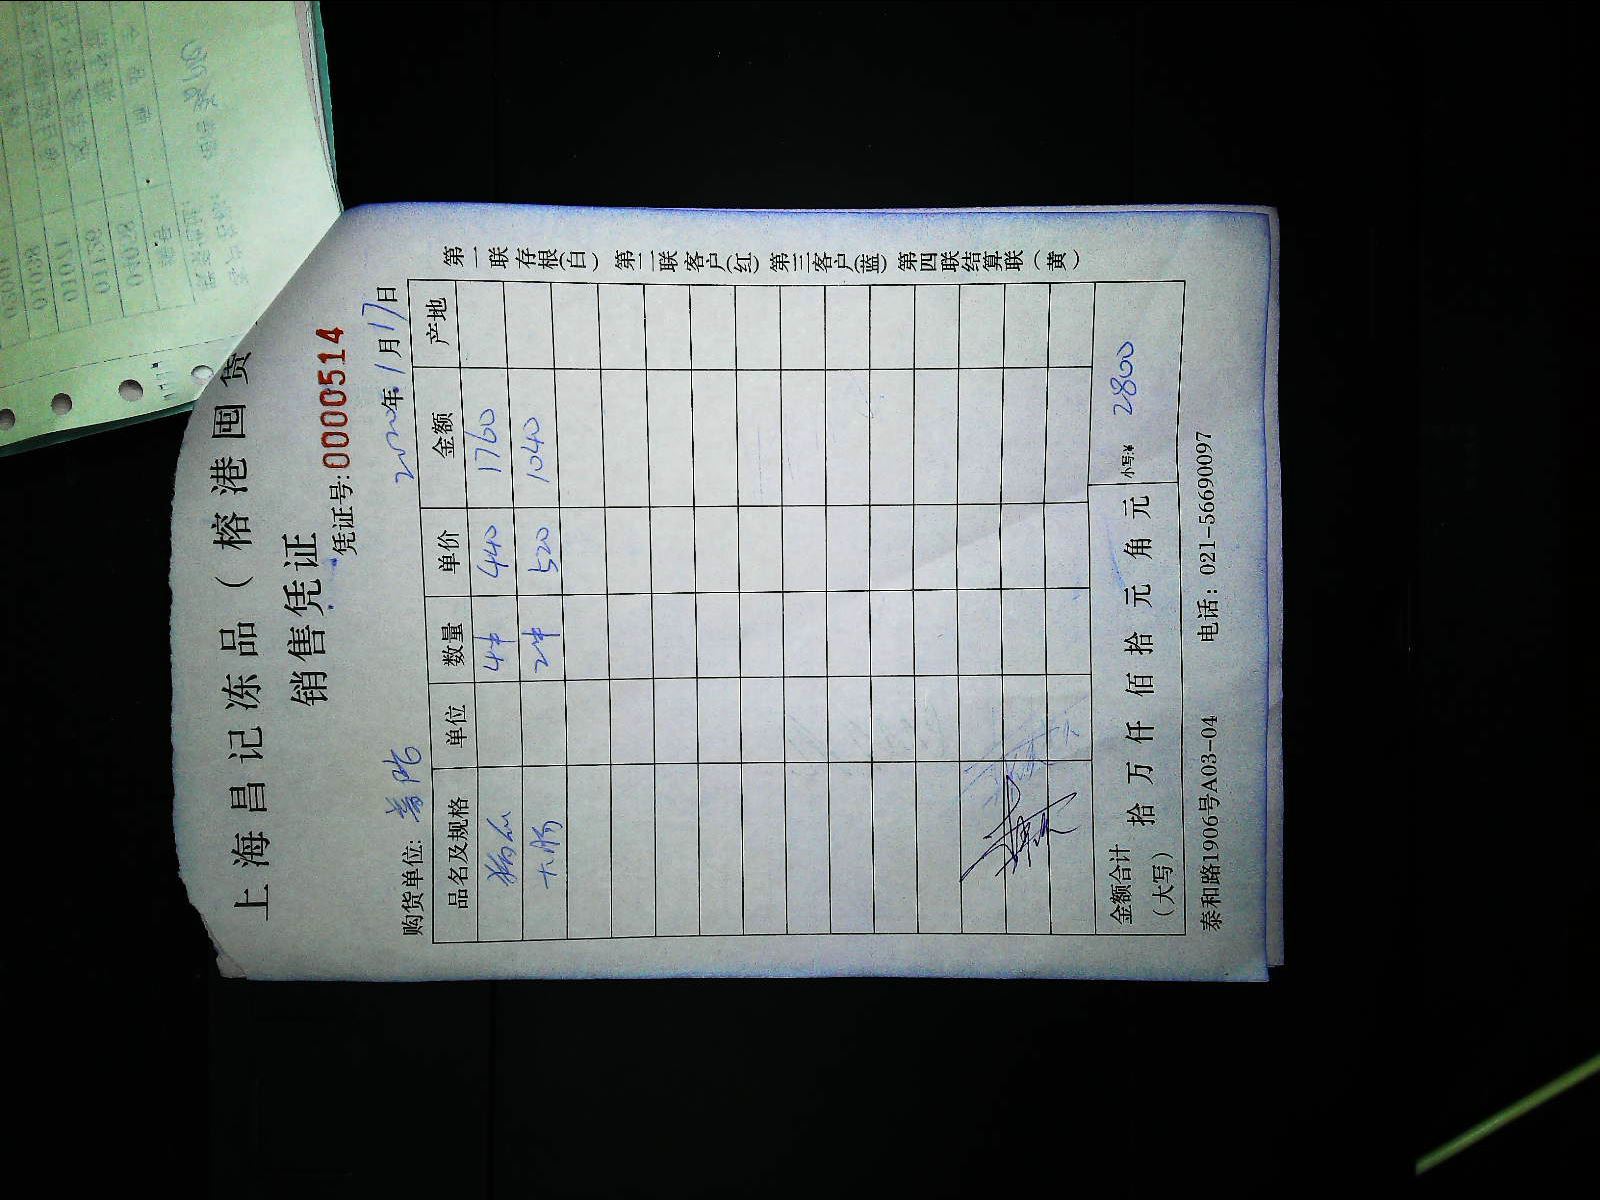 上海昌记冻品（榕港囤货
销售凭证
凭证号:0000514
购货单位:
年1月17日
品名及规格 单位 数量 单价 金额 产地
4件 440 1760
大肠 2件 520 1040
金额合计（大写） 拾 万 仟 佰 拾 元 角 元 小写:¥ 2800
泰和路1906号A03-04 电话：021-56690097
第一联存根(白) 第二联客户(红) 第三客户(蓝) 第四联结算联（黄）